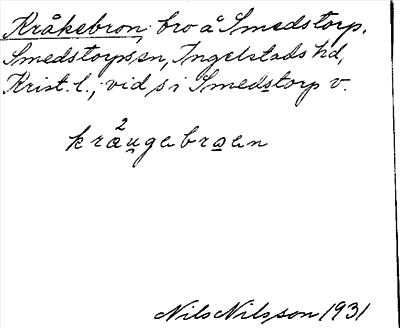 Kråkebron, bro å Smedstorp,
Smedstorps sn, Ingelstads hd,
Krist. l.; vid s i Smedstorp v.
kra²ugebroen
Nils Nilsson 1931